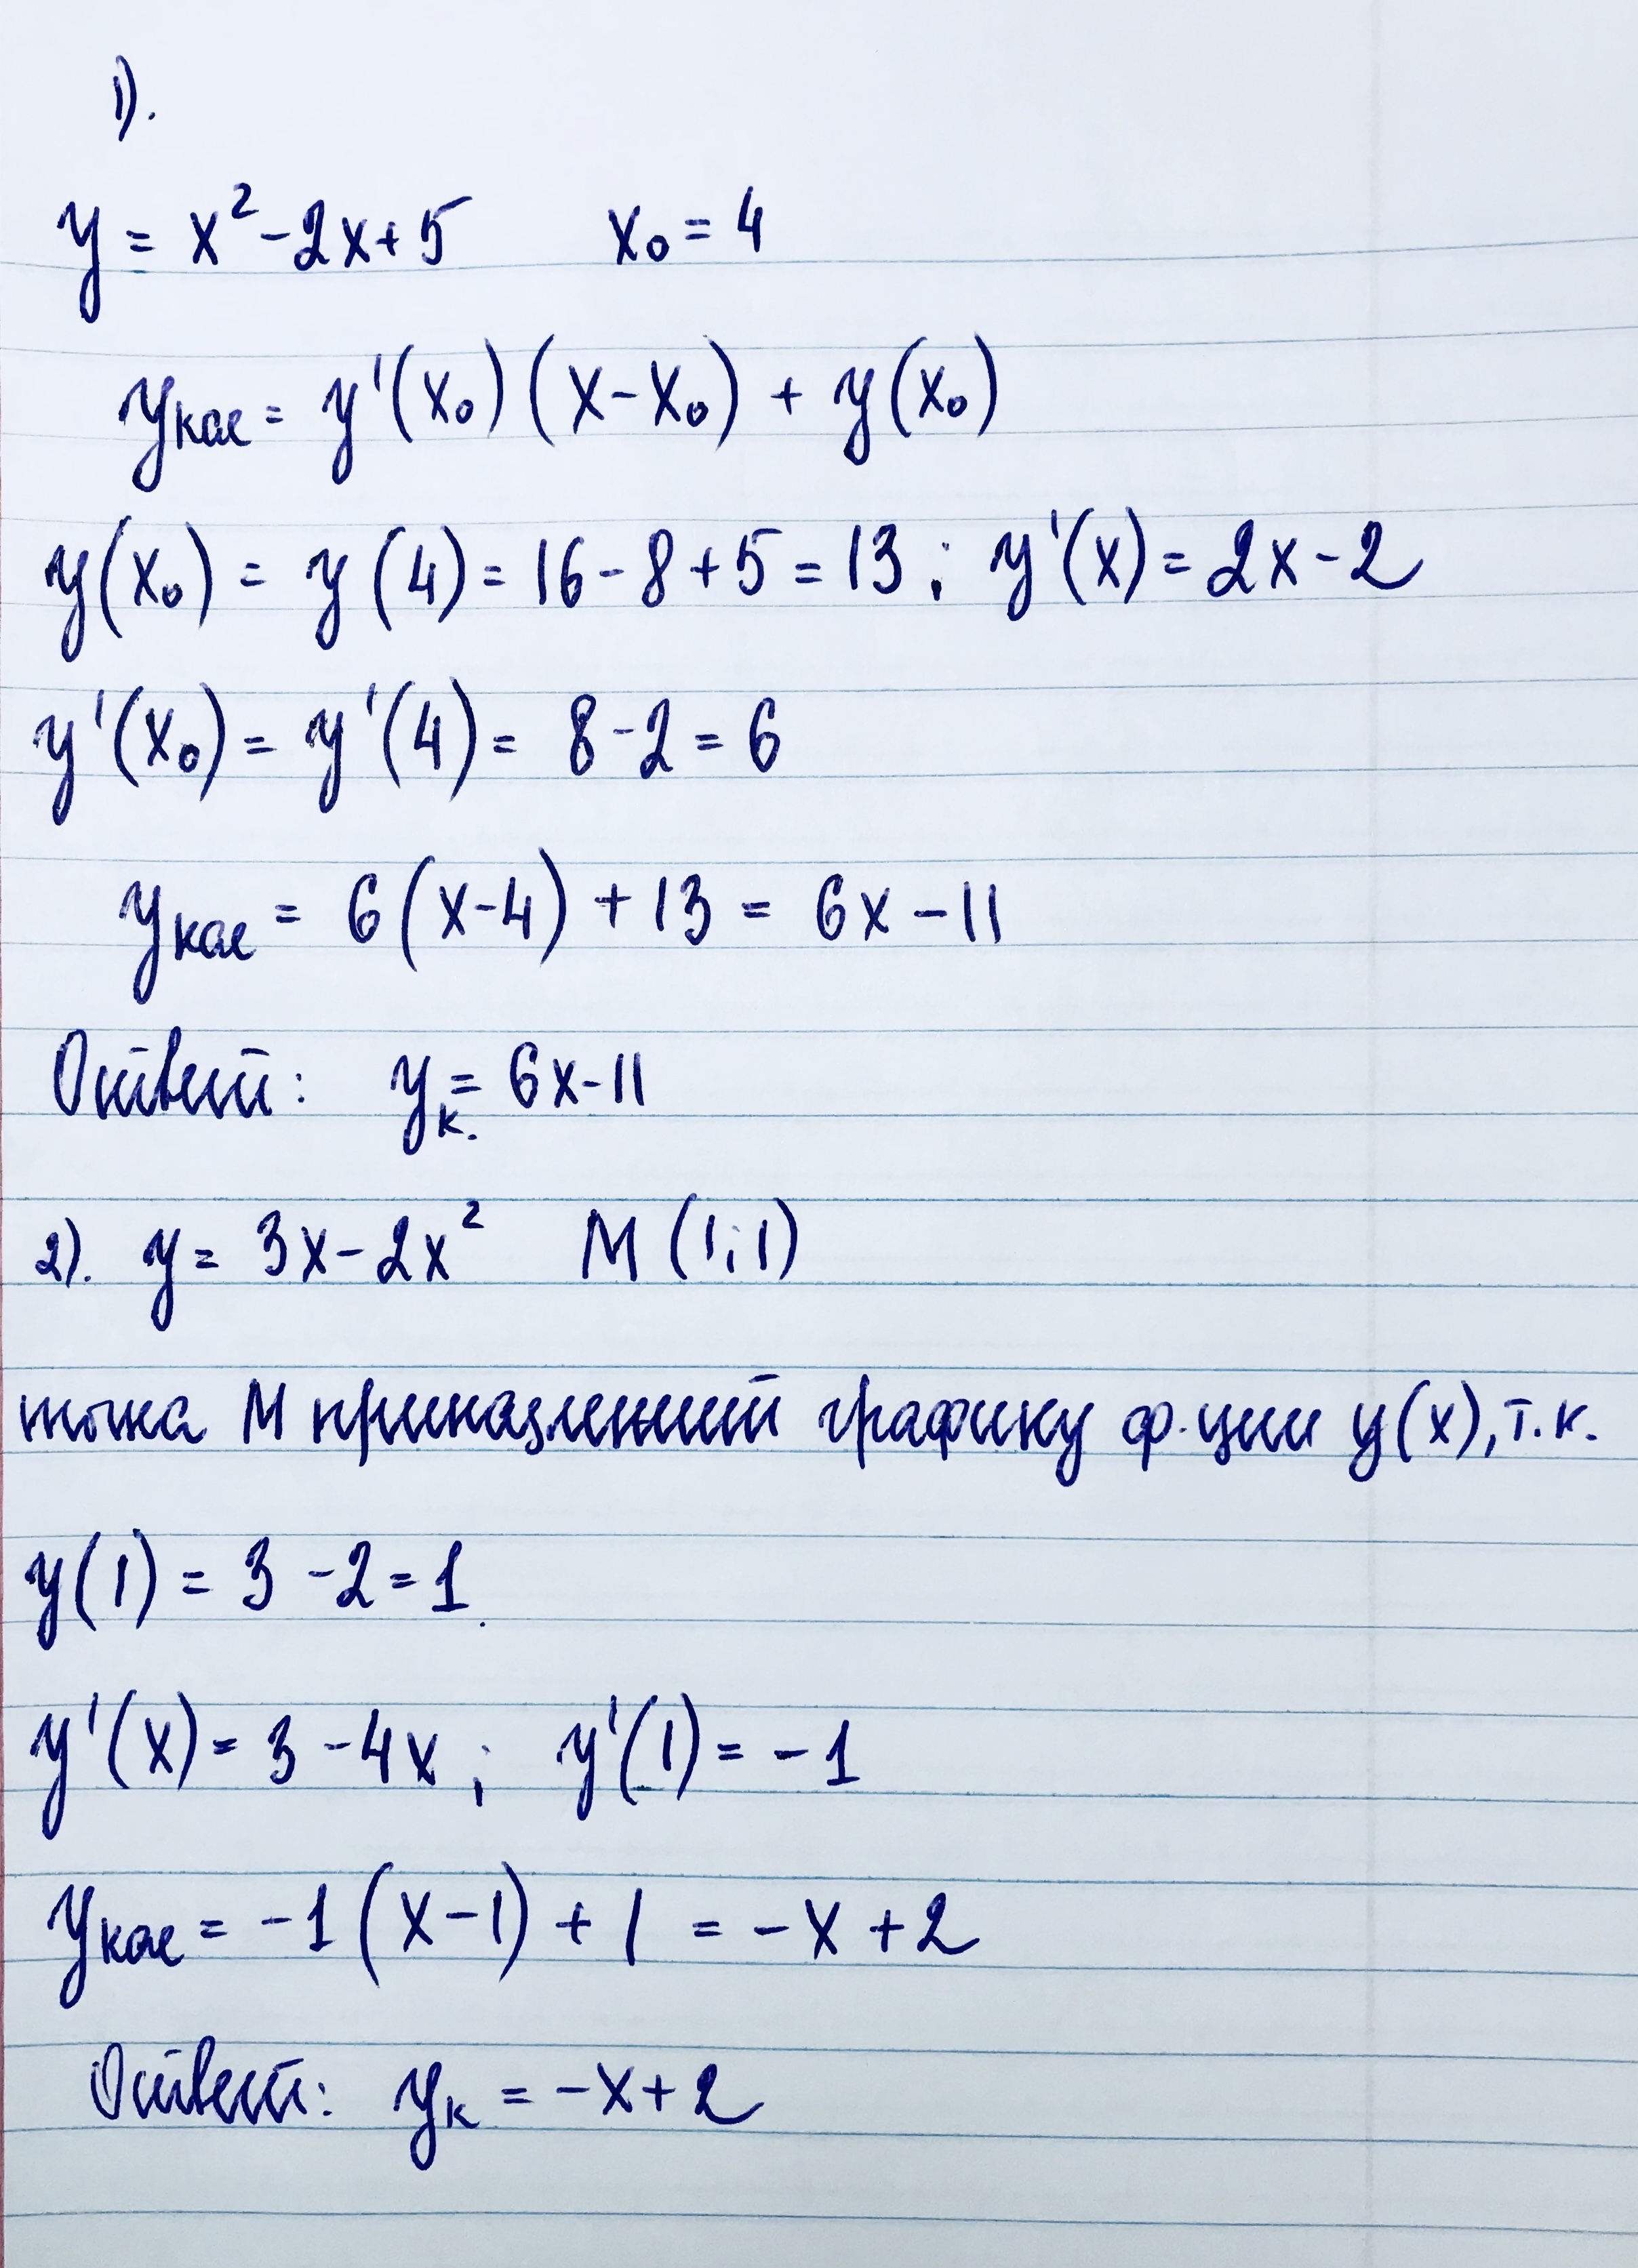 1).
y = x² - 2x + 5 x₀ = 4
yкас = y'(x₀)(x - x₀) + y(x₀)
y(x₀) = y(4) = 16 - 8 + 5 = 13; y'(x) = 2x - 2
y'(x₀) = y'(4) = 8 - 2 = 6
yкас = 6(x - 4) + 13 = 6x - 11
Ответ: yк. = 6x - 11
2). y = 3x - 2x² M(1;1)
точка M принадлежит графику ф-ции y(x), т.к.
y(1) = 3 - 2 = 1.
y'(x) = 3 - 4x; y'(1) = -1
yкас = -1(x - 1) + 1 = -x + 2
Ответ: yк = -x + 2